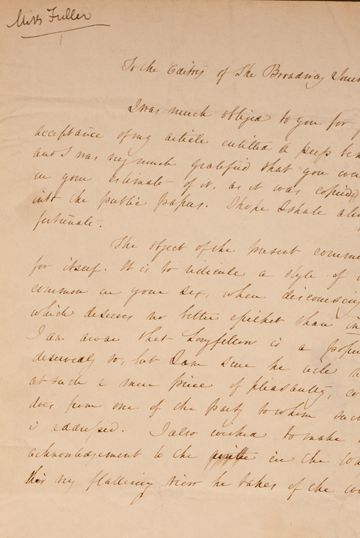 Miss Fuller
To the Editors of The Broadway
I was much obliged to you for
acceptance of my article entitled a peep
and I was very much gratified that you
in your estimate of it, as it was copied
into the public papers. I hope I shall
fortunate.
The object of the present
for itself. It is to ridicule a style of
common in your sex, when discoursing
which deserves no better epithet than
I am aware that Longfellow is a
deservedly so, but I am sure he will
at such a mere piece of pleasantry,
does from one of the party to whom such
is addressed. I also wished to make
acknowledgement to the in the
this my flattering view he takes of the